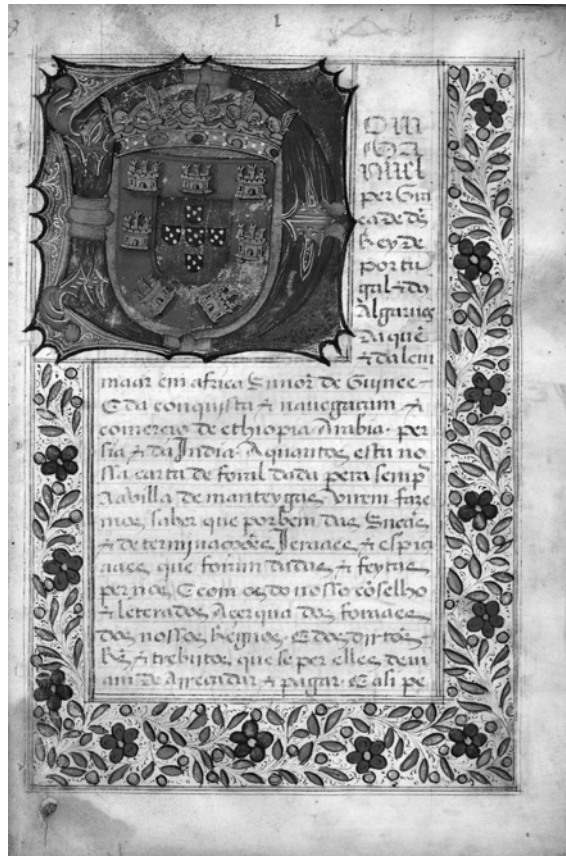 1
D OM
MA
NUEL
per Gra
ca de ds
Rey de
portu
gal & do
Algarues
da que
& da lem
maar em africa Snnor de Guynee
E da conquista & nauegacam &
comercio de ethiopia Arabia per
sia & da India A quantos esta no
ssa carta de foral dada pera semp
Aavilla de manteygas virem faze
mos saber que por bem das Sneãs
& determinaçoões Jeraaes & espiçi
aaes que foram dadas & feytas
per nos E com os do nosso côselho
& leterados Açerqua dos foraaes
dos nossos Regnos E dos dirtos
Rs & trebutos que se per elles deui
am De Arrecadar & pagar E asi pe